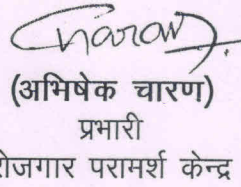 Charan
(अभिषेक चारण)
प्रभारी
रोजगार परामर्श केन्द्र